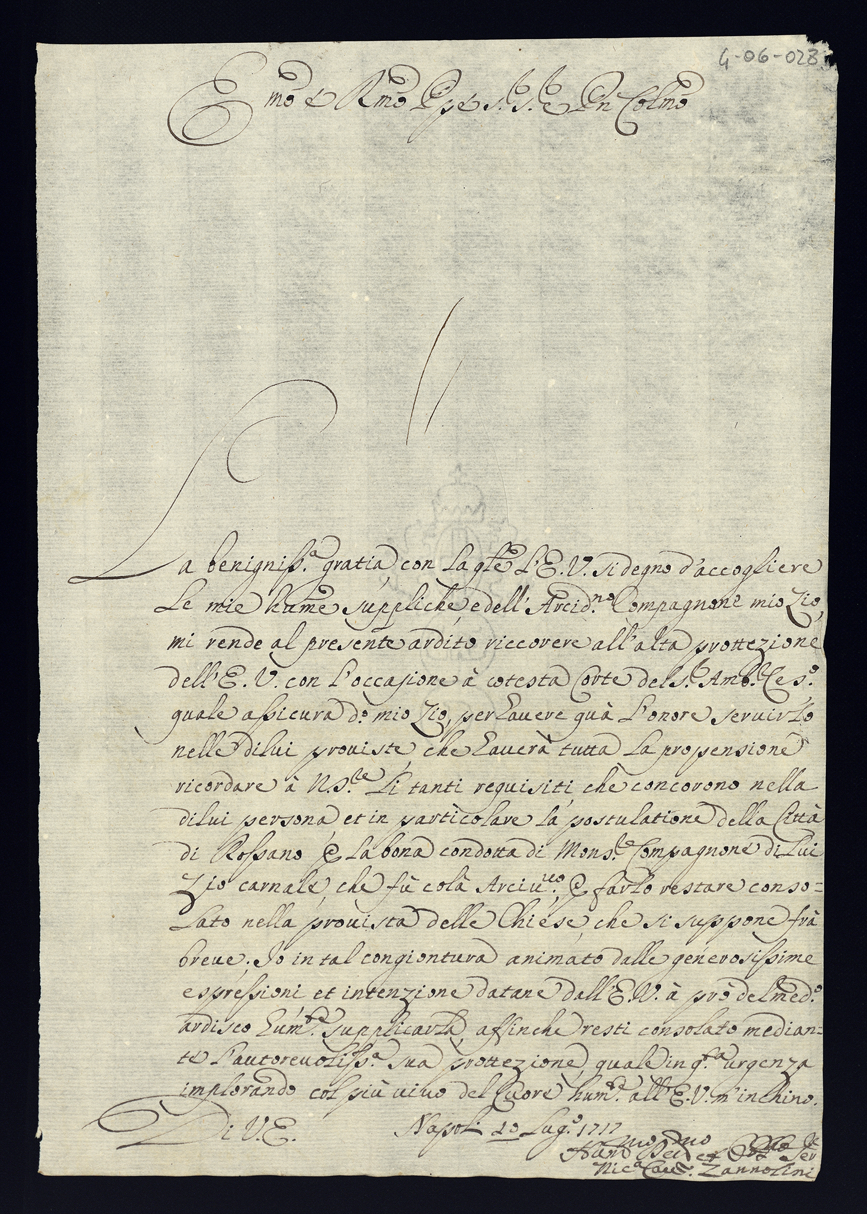 4-06-023
Emo e Rmo Pnpe Sr. Sr. e Pn Colmo
La benigniss.a gratia, con la qle l'E. V. si degnò d'accogliere
le mie hume suppliche, e dell'Arcid.no Compagnone mio Zio,
mi rende al presente ardito riccorere all'alta prottezione
dell'E. V. con l'occasione à cotesta Corte del S.r Amb.r Ces.o
quale assicura d.o mio Zio, per havere quà l'onore servirlo
nelle di lui proviste, che haverà tutta la propensione
ricordare à N. S.re li tanti requisiti che concorono nella
di lui persona et in particolare la postulatione della Città
di Rossano p la bona condotta di Mons.re Compagnone di lui
Zio carnale, che fù colà Arciv.vo, p farlo restare conso=
lato nella provista delle Chiese, che si suppone frà
breve; Io in tal congiontura animato dalle generosissime
espressioni et intenzione datane dall'E. V. à prò del med.o
ardisco hum.te supplicarla, affinche resti consolato median=
te l'autorevoliss.a sua prottezione, quale in q.ta urgenza
implorando col più vivo del Cuore hum.te all'E. V. m'inchino.
Di V. E. Napoli 20 Lug.o 1717
Hum.mo Dev.mo et Obb.mo Ser.re
Nic.a Cav.r Zannolini